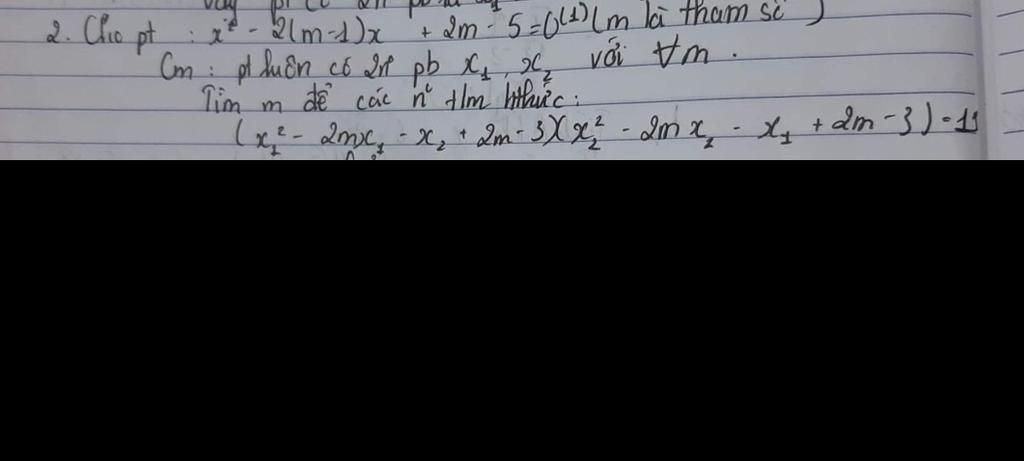 2. Cho pt : x² - 2(m-1)x + 2m - 5 = 0 (1) (m là tham số)
Cm : pt luôn có 2n° pb x₁, x₂ với ∀m.
Tìm m để các n° t/m hthức:
(x₁² - 2mx₁ - x₂ + 2m - 3)(x₂² - 2mx₂ - x₁ + 2m - 3) = 11